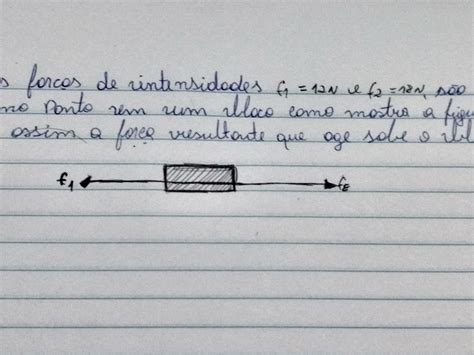 s forcas de intensidades f1 = 12N e f2 = 18N, são
no Ponto em um bloco como mostra a figu
assim a força resultante que age sobe o bl
f1